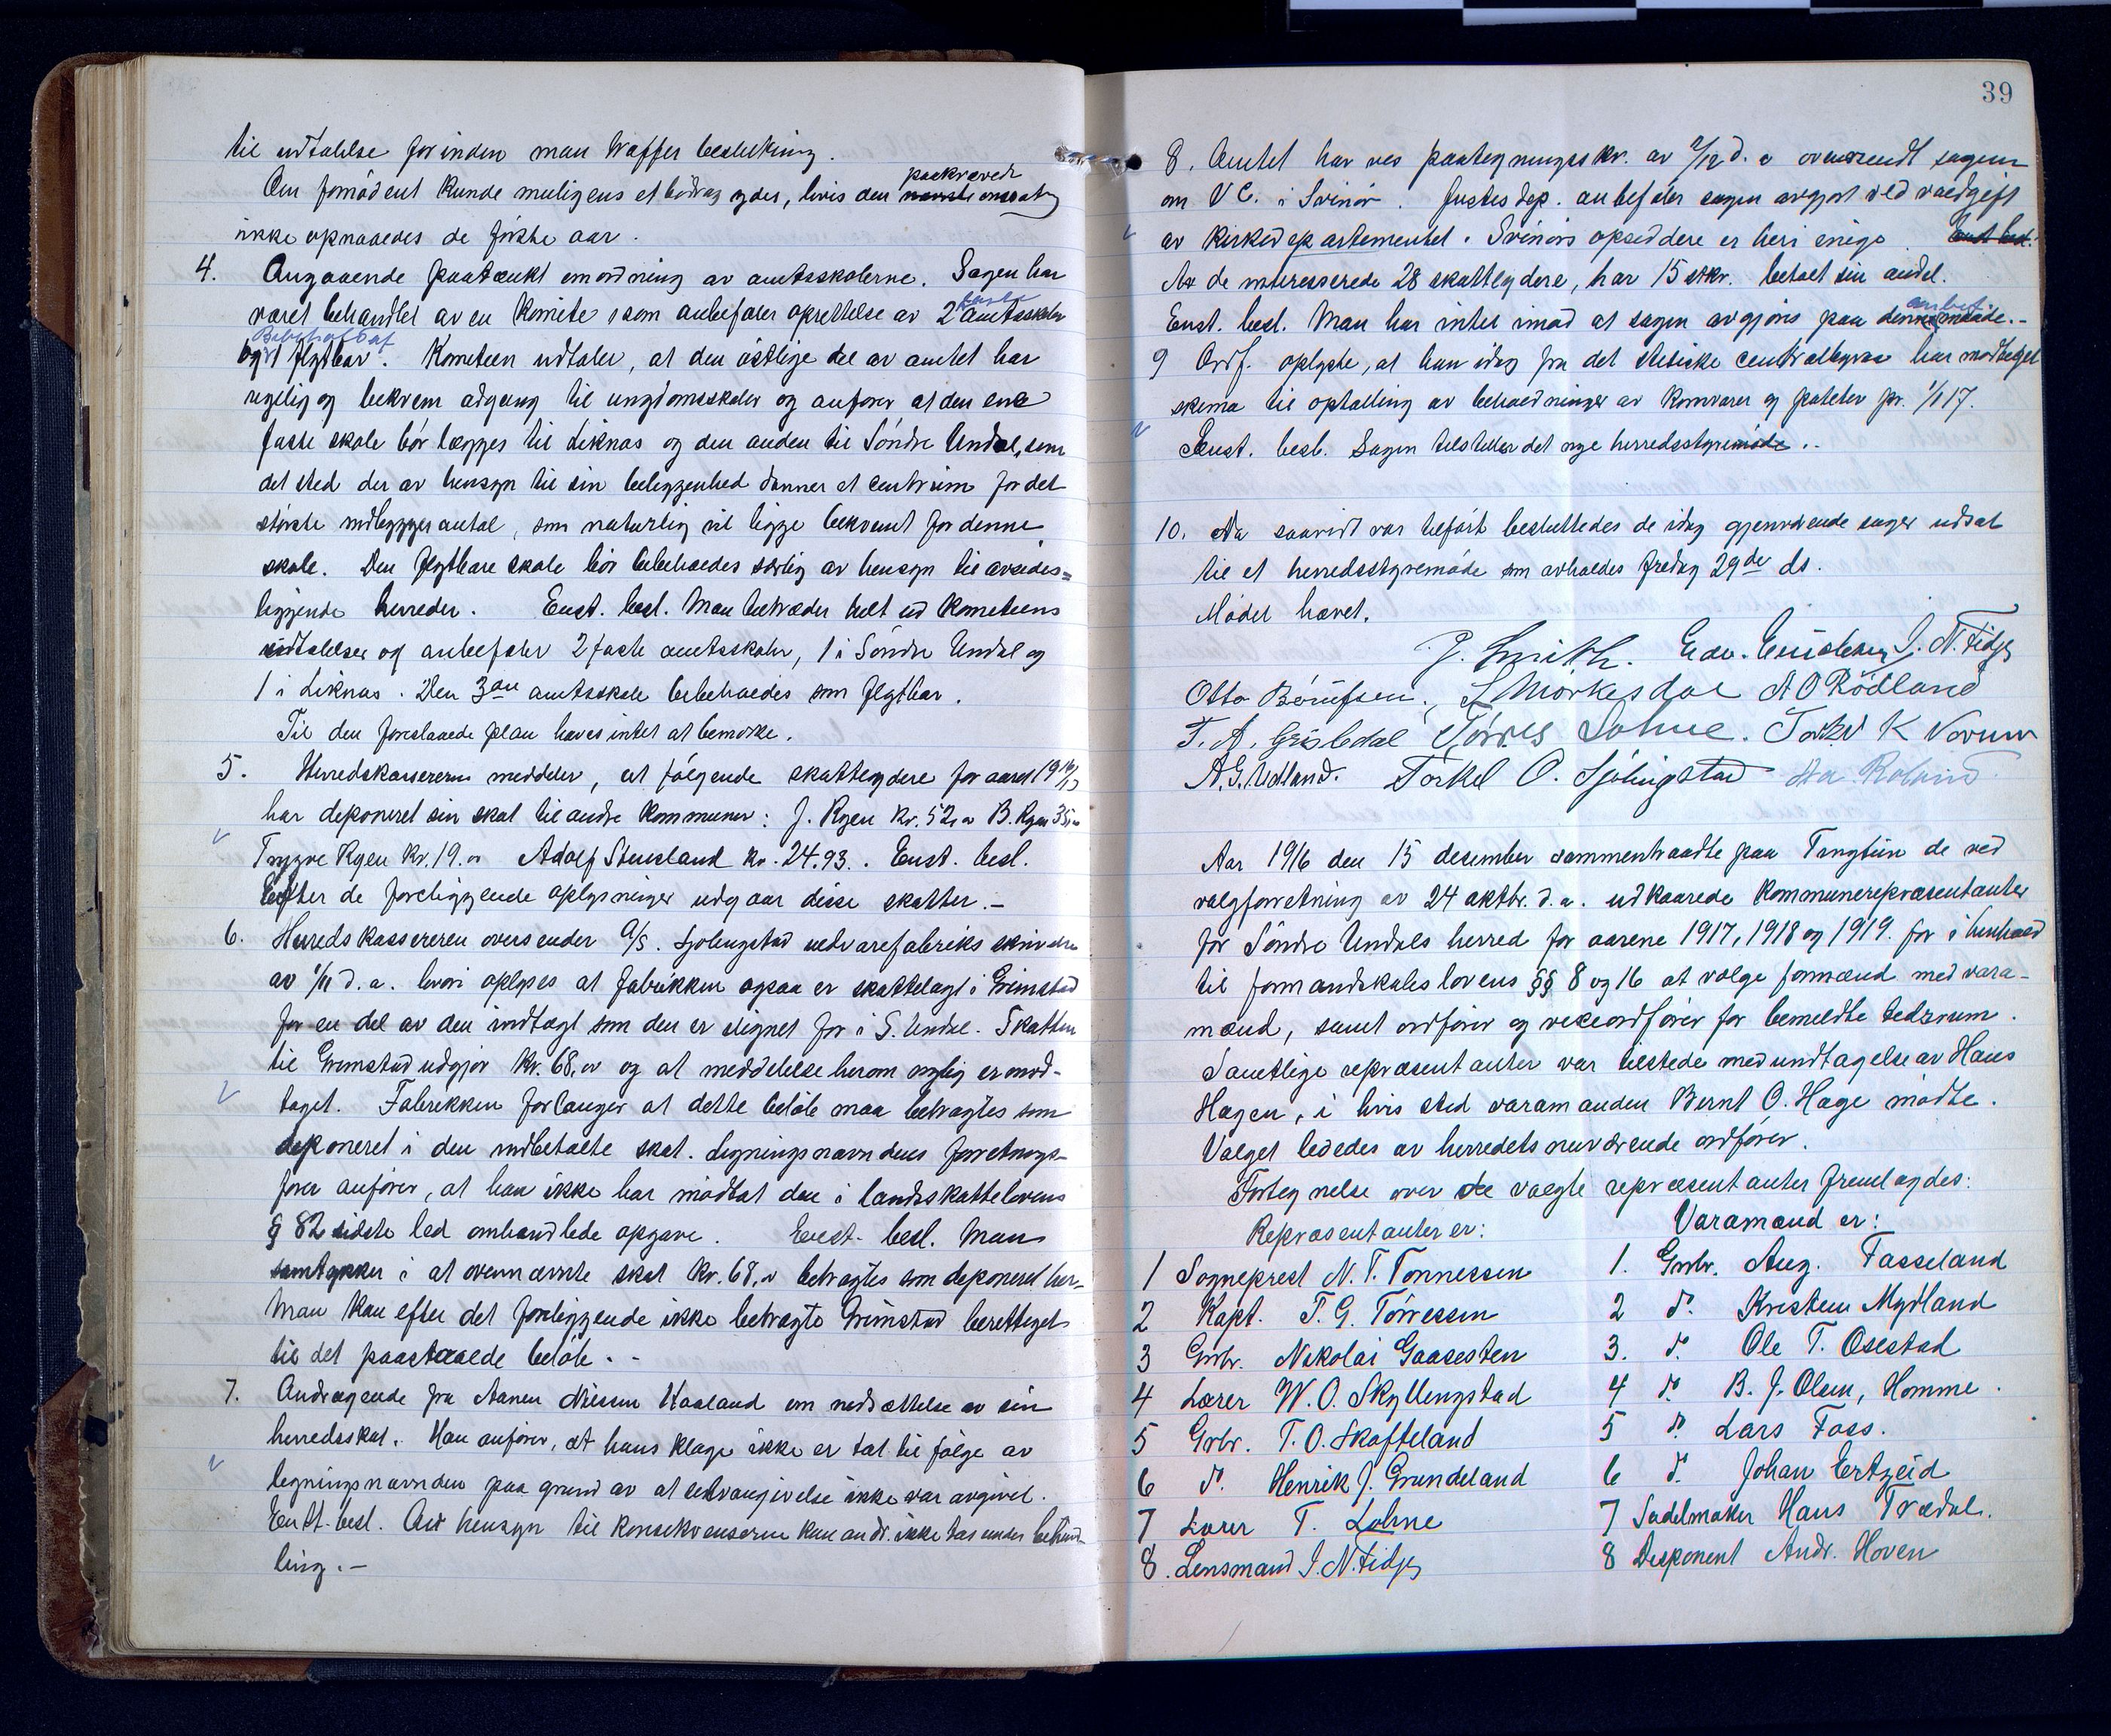 til udtalelse forinden man træffer beslutning.
Om fornødent kunde muligens et bidrag ydes, hvis den paakrævede omsætn
ikke opnaaedes de første aar.
4. Angaaende paatænkt omordning av amtsskolerne. Sagen har
været behandlet av en komite som anbefaler oprettelse av 2 faste amtsskoler
flytbar. Komiteen udtaler, at den østlige del av amtet har
rigelig og bekvem adgang til ungdomsskoler og anfører at den ene
faste skole bør lægges til Liknes og den anden til Søndre Undal, som
det sted der av hensyn til sin beliggenhed danner et centrum for det
største indbyggerantal, som naturlig vil ligge bekvemt for denne
skole. Den flytbare skole bør bibeholdes særlig av hensyn til avsides=
liggende herreder. Enst. besl. Man tiltræder helt ud komiteens
udtalelser og anbefaler 2 faste amtsskoler, 1 i Søndre Undal og
1 i Liknes. Den 3die amtsskole bibeholdes som flytbar.
Til den foreslaaede plan haves intet at bemerke.
5. Herredskassereren meddeler, at følgende skatteydere for aaret 1916/17
har deponeret sin skat til andre kommuner: J. Rgen kr. 52,00 B. Rgen 35,00
Trygve Rgen kr. 19.00 Adolf Stusland kr. 24.93. Enst. besl.
Efter de foreliggende oplysninger udgaar disse skatter.-
6. Herredskassereren oversender A/S. Sjølingstad uldvarefabriks skrivelse
av 1/11 d.a. hvori oplyses at fabrikken ogsaa er skattelagt i Grimstad
for en del av den indtægt som den er lignet for i S. Undal. Skatten
til Grimstad udgjør kr. 68,00 og at meddelelse herom nylig er mod-
taget. Fabrikken forlanger at dette beløb maa betragtes som
deponeret i den indbetalte skat. Ligningsnævndens forretnings-
fører anfører, at han ikke har modtat den i landsskattelovens
§ 82 sidste led omhandlede opgave. Enst. besl. Man
samtykker i at ovennævnte skat kr. 68,00 betragtes som deponeret her-
Man kan efter det foreliggende ikke betragte Grimstad berettiget
til det paastaaede beløb.-
7. Andragende fra Aanen Nilssen Haaland om nedsættelse av sin
herredsskat. Han anfører, at hans klage ikke er tat til følge av
ligningsnævnden paa grund av at selvangivelse ikke var avgivet.
Enst. besl. Av hensyn til konsekvenserne kan andr. ikke tas under behand
ling.-
39
8. Amtet har ved paategningsskr. av 2/12 d.a. oversendt sagen
om V C. i Svinør. Justisdep. anbefaler sagen avgjort ved voldgift
av kirkedepartementet. Svinørs opsiddere er heri enige. Enst besl.
Av de interesserede 28 skatteydere, har 15 stkr. betalt sin andel.
Enst. besl. Man har intet imod at sagen avgjøres paa denne anbef. maade.-
9 Ordf. oplyste, at han idag fra det statistiske centralbyraa har modtaget
skema til optælling av beholdninger av kornvarer og poteter pr. 1/1 17.
Enst. besl. Sagen tilstilles det nye herredsstyremøde.-
10. Da saavidt var behørt besluttedes de idag gjenværende sager udsat
til et herredsstyremøde som avholdes fredag 29de ds.
Mødet hævet.
J. Smith. Edv. J. N. Fidje
Otto Berntsen., S Mørkesdal A O Rødland
T. A. Grisledal Tørres Lohne. Torkel K Vorum
A. G. Udland. Torkel O. Sjølingstad Aa. Roland
Aar 1916 den 15 desember sammentraadte paa Tangtun de ved
valgforretning av 24 oktbr. d.a. udkaarede kommunerepræsentanter
for Søndre Undals herred for aarene 1917, 1918 og 1919. for i henhold
til formandskabslovens §§ 8 og 16 at vælge formænd med vara-
mænd, samt ordfører og viseordfører for bemeldte tidsrum.
Samtlige repræsentanter var tilstede med undtagelse av Hans
Hagen, i hvis sted varamanden Bernt O. Hage mødte.
Valget lededes av herredets nuværende ordfører.
Fortegnelse over de valgte repræsentanter fremlagdes:
Repræsentanter er: Varamænd er:
1 Sogneprest N. T. Tønnessen 1. Grbr. Aug. Fasseland
2 Kapt. T. G. Tørressen 2 do. Kristen Mydland
3 Grbr. Nikolai Gaasesten 3. do. Ole T. Osestad
4 Lærer W. O. Skyllingstad 4 do. B. J. Olsen, Homme.
5 Grbr. T. O. Skofteland 5 do. Lars Foss.
6 do. Henrik J. Grundeland 6 do. Johan Ertzeid
7 Lærer T. Lohne 7 Sadelmaker Hans Trædal.
8. Lensmand J. N. Fidje 8 Disponent Andr. Hoven